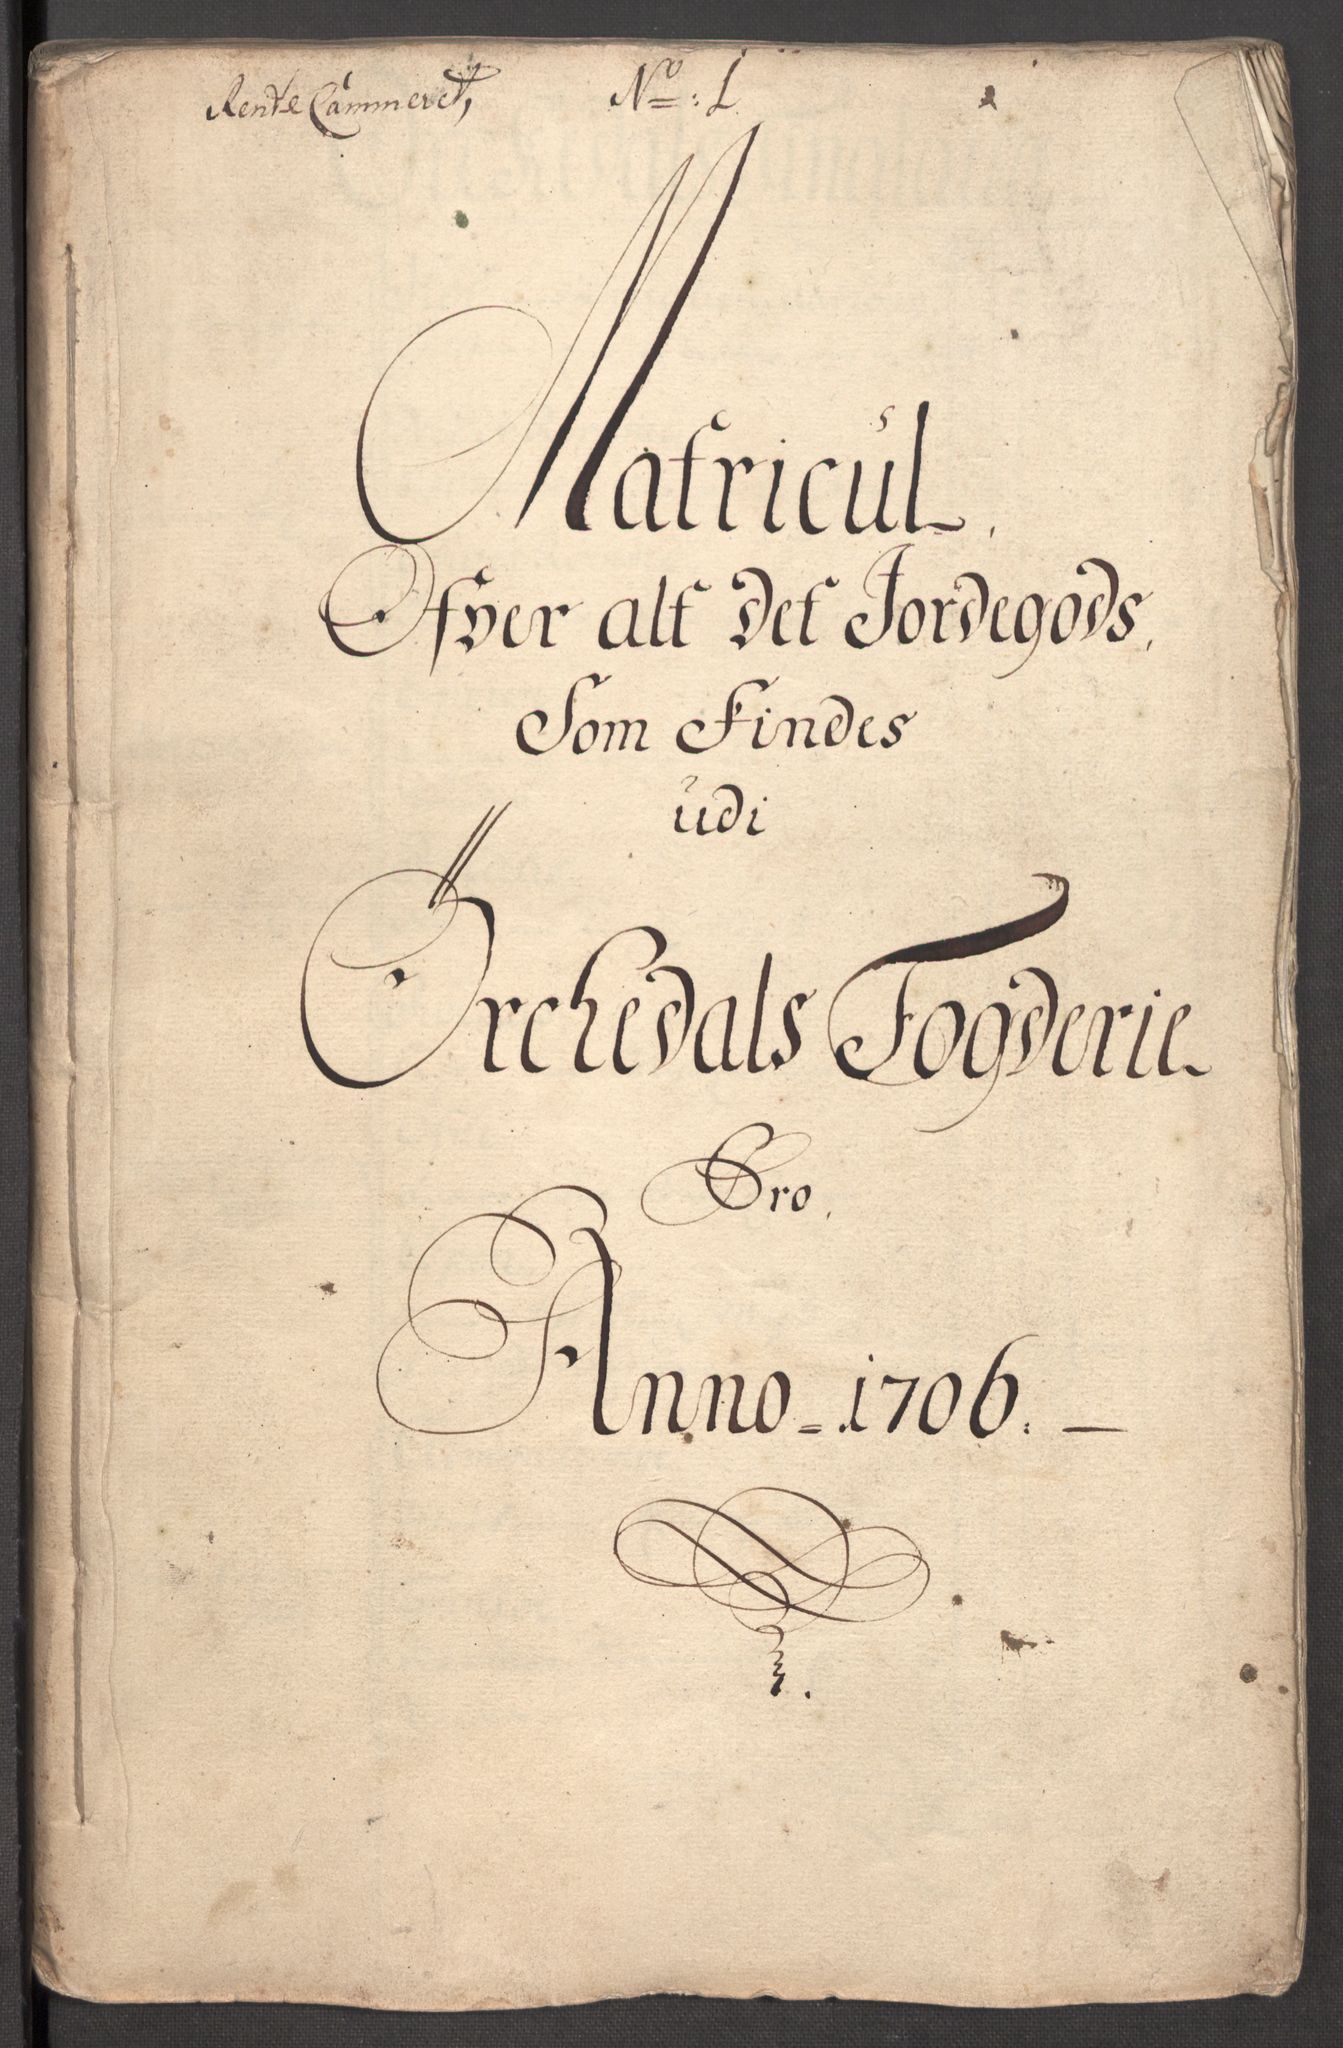 Rente Cammeret, No: 1.
Matricul.
Ofver alt det Jordegods,
Som Findes
udi
Örchedals Fogderie
Pro.
Anno = 1706. —